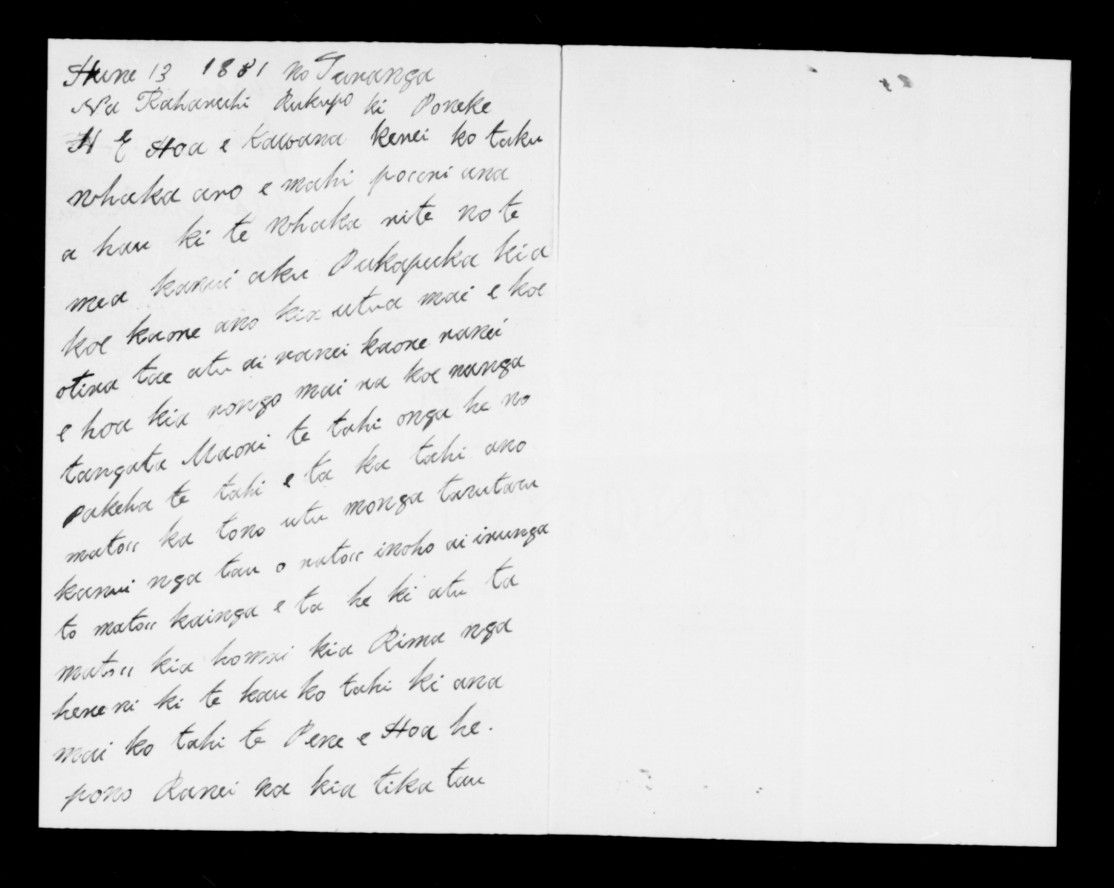 Hune 13 1881 no Turanga
Na Raharuhi Rukupo ki Poneke
H E Hoa e Kawana kenei ko taku
whaka aro e mahi pocori ana
a hau ki te whaka rite no te
mea kanui aku Pukapuka kia
koe kaore ano kia utua mai e koe
otira tae atu ai ranei kaore ranei
e hoa kia rongo mai na koe nanga
tangata Maori te tahi onga he no
pakeha te tahi e ta ka tahi ano
matou ka tono utu monga tarutaru
kanui nga tau o ratou inoho ai irunga
to matou kainga e ta he ki atu ta
matou kia homai kia Rima nga
hereni ki te kau ko tahi ki ana
mai ko tahi te Pene e Hoa he.
pono Ranei na kia tika tau